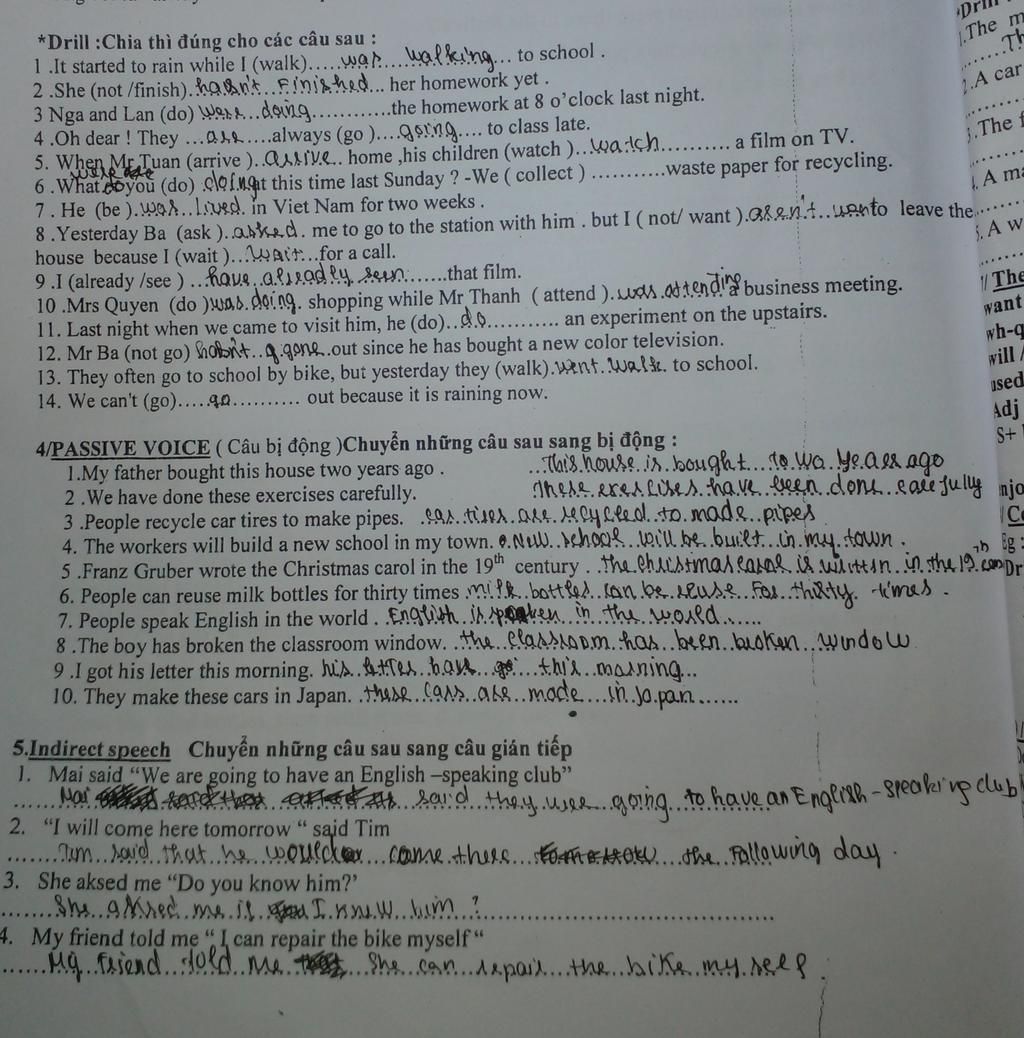 *Drill :Chia thì đúng cho các câu sau :
1 .It started to rain while I (walk).....was....walking... to school .
2 .She (not /finish).hasn't..finished... her homework yet .
3 Nga and Lan (do) were...doing............the homework at 8 o'clock last night.
4 .Oh dear ! They ...are.....always (go )...going.... to class late.
5. When Mr Tuan (arrive )..arrive.. home ,his children (watch )..watch.......... a film on TV.
6 .What do you (do) doing at this time last Sunday ? -We ( collect ) ...........waste paper for recycling.
7 . He (be ).was..lived. in Viet Nam for two weeks .
8 .Yesterday Ba (ask )..asked. me to go to the station with him . but I ( not/ want ).aren't..want to leave the
house because I (wait )...wait...for a call.
9 .I (already /see ) ...have.already.seen.......that film.
10 .Mrs Quyen (do )was.doing. shopping while Mr Thanh ( attend ).was.attending a business meeting.
11. Last night when we came to visit him, he (do)..do........... an experiment on the upstairs.
12. Mr Ba (not go) hasn't..g.gone.out since he has bought a new color television.
13. They often go to school by bike, but yesterday they (walk).went.walk. to school.
14. We can't (go).....go.......... out because it is raining now.
4/PASSIVE VOICE ( Câu bị động )Chuyển những câu sau sang bị động :
1.My father bought this house two years ago . ...This house.is.bought...to wo.years ago
2 .We have done these exercises carefully. These exercises.have.been.done.carefully
3 .People recycle car tires to make pipes. .car.tires.are.recycled.to.made.pipes
4. The workers will build a new school in my town. a.New..school..will be.built..in.my.town.
5 .Franz Gruber wrote the Christmas carol in the 19th century . .the.christmas carol.is.written..in.the 19th.cen
6. People can reuse milk bottles for thirty times .milk.bottles.can be.reuse..For.thirty.-times.
7. People speak English in the world . .English.is spoken..in..the..world......
8 .The boy has broken the classroom window. ..the.classroom.has..been.broken..window
9 .I got his letter this morning. his.letter.have..go...this..morning...
10. They make these cars in Japan. .these.cars.are..made...in japan......
5.Indirect speech Chuyển những câu sau sang câu gián tiếp
1. Mai said “We are going to have an English –speaking club”
......Mai said they were going to have an English - speaking club
2. “I will come here tomorrow “ said Tim
.......Tim said that he would come there the following day .
3. She aksed me “Do you know him?’
.......She asked me if I knew him ?...............................
4. My friend told me “ I can repair the bike myself “
......My friend told me she can repair the bike my self .
*Drill
1.The m
......Th
2.A car
3.The f
4. A ma
5. A w
The
want
wh-q
will /
used
Adj
S+
njo
Eg :
Dr